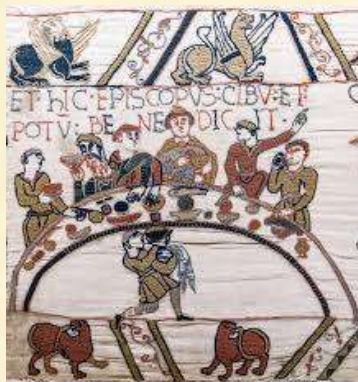 ET·hIC·EPISCOPVS:CIBV:ET
POTV: BE NE DIC IT·